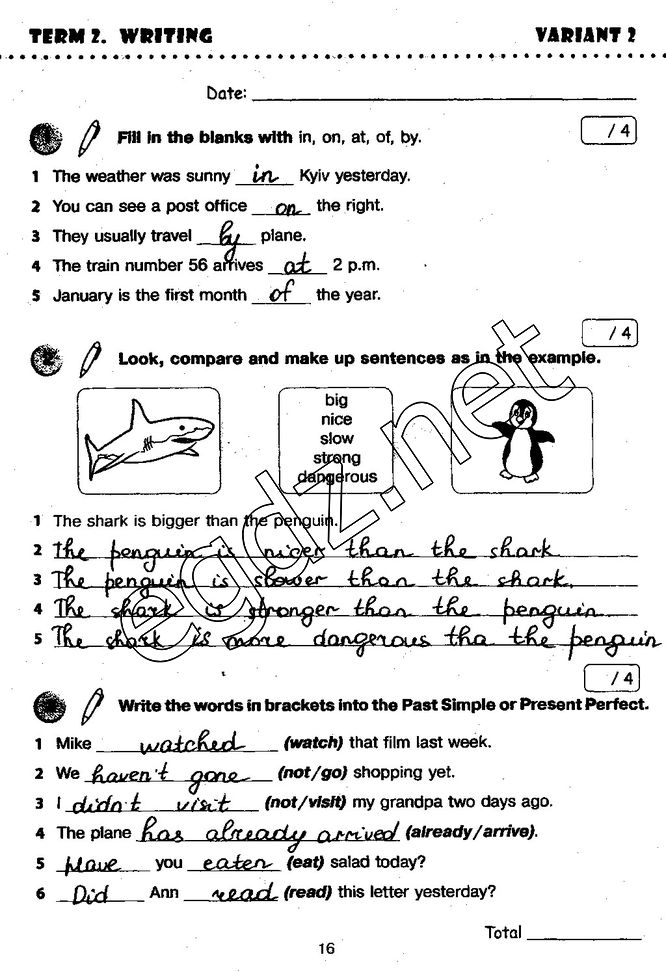 TERM 2. WRITING VARIANT 2
Date:
1 Fill in the blanks with in, on, at, of, by. / 4
1 The weather was sunny in Kyiv yesterday.
2 You can see a post office on the right.
3 They usually travel by plane.
4 The train number 56 arrives at 2 p.m.
5 January is the first month of the year.
/ 4
2 Look, compare and make up sentences as in the example.
big
nice
slow
strong
dangerous
1 The shark is bigger than the penguin.
2 The penguin is nicer than the shark
3 The penguin is slower than the shark.
4 The shark is stronger than the penguin
5 The shark is more dangerous tha the penguin
egdz.net
/ 4
Write the words in brackets into the Past Simple or Present Perfect.
1 Mike watched (watch) that film last week.
2 We haven't gone (not/go) shopping yet.
3 I didn't visit (not/visit) my grandpa two days ago.
4 The plane has already arrived (already/arrive).
5 Have you eaten (eat) salad today?
6 Did Ann read (read) this letter yesterday?
Total
16